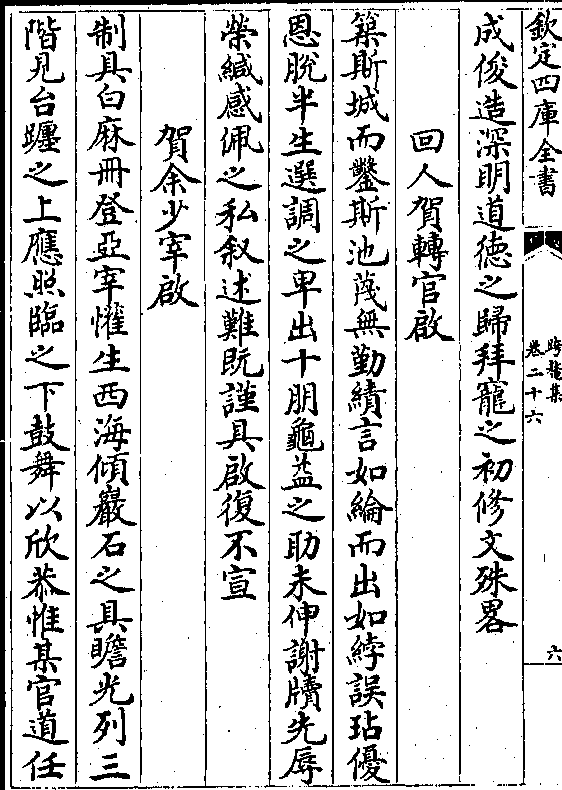 欽定四庫全書
跨鼇集
卷二十六
六
成俊造深明道德之歸拜寵之初修文殊畧
回人賀轉官啟
築斯城而鑿斯池蔑無勤績言如綸而出如綍誤玷優
恩脫半生選調之卑出十朋龜益之助未伸謝牘先辱
榮緘感佩之私叙述難既謹具啟復不宣
賀余少宰啟
制具白麻冊登亞宰懽生西海傾巖石之具瞻光列三
階見台躔之上應照臨之下鼓舞以欣恭惟某官道任